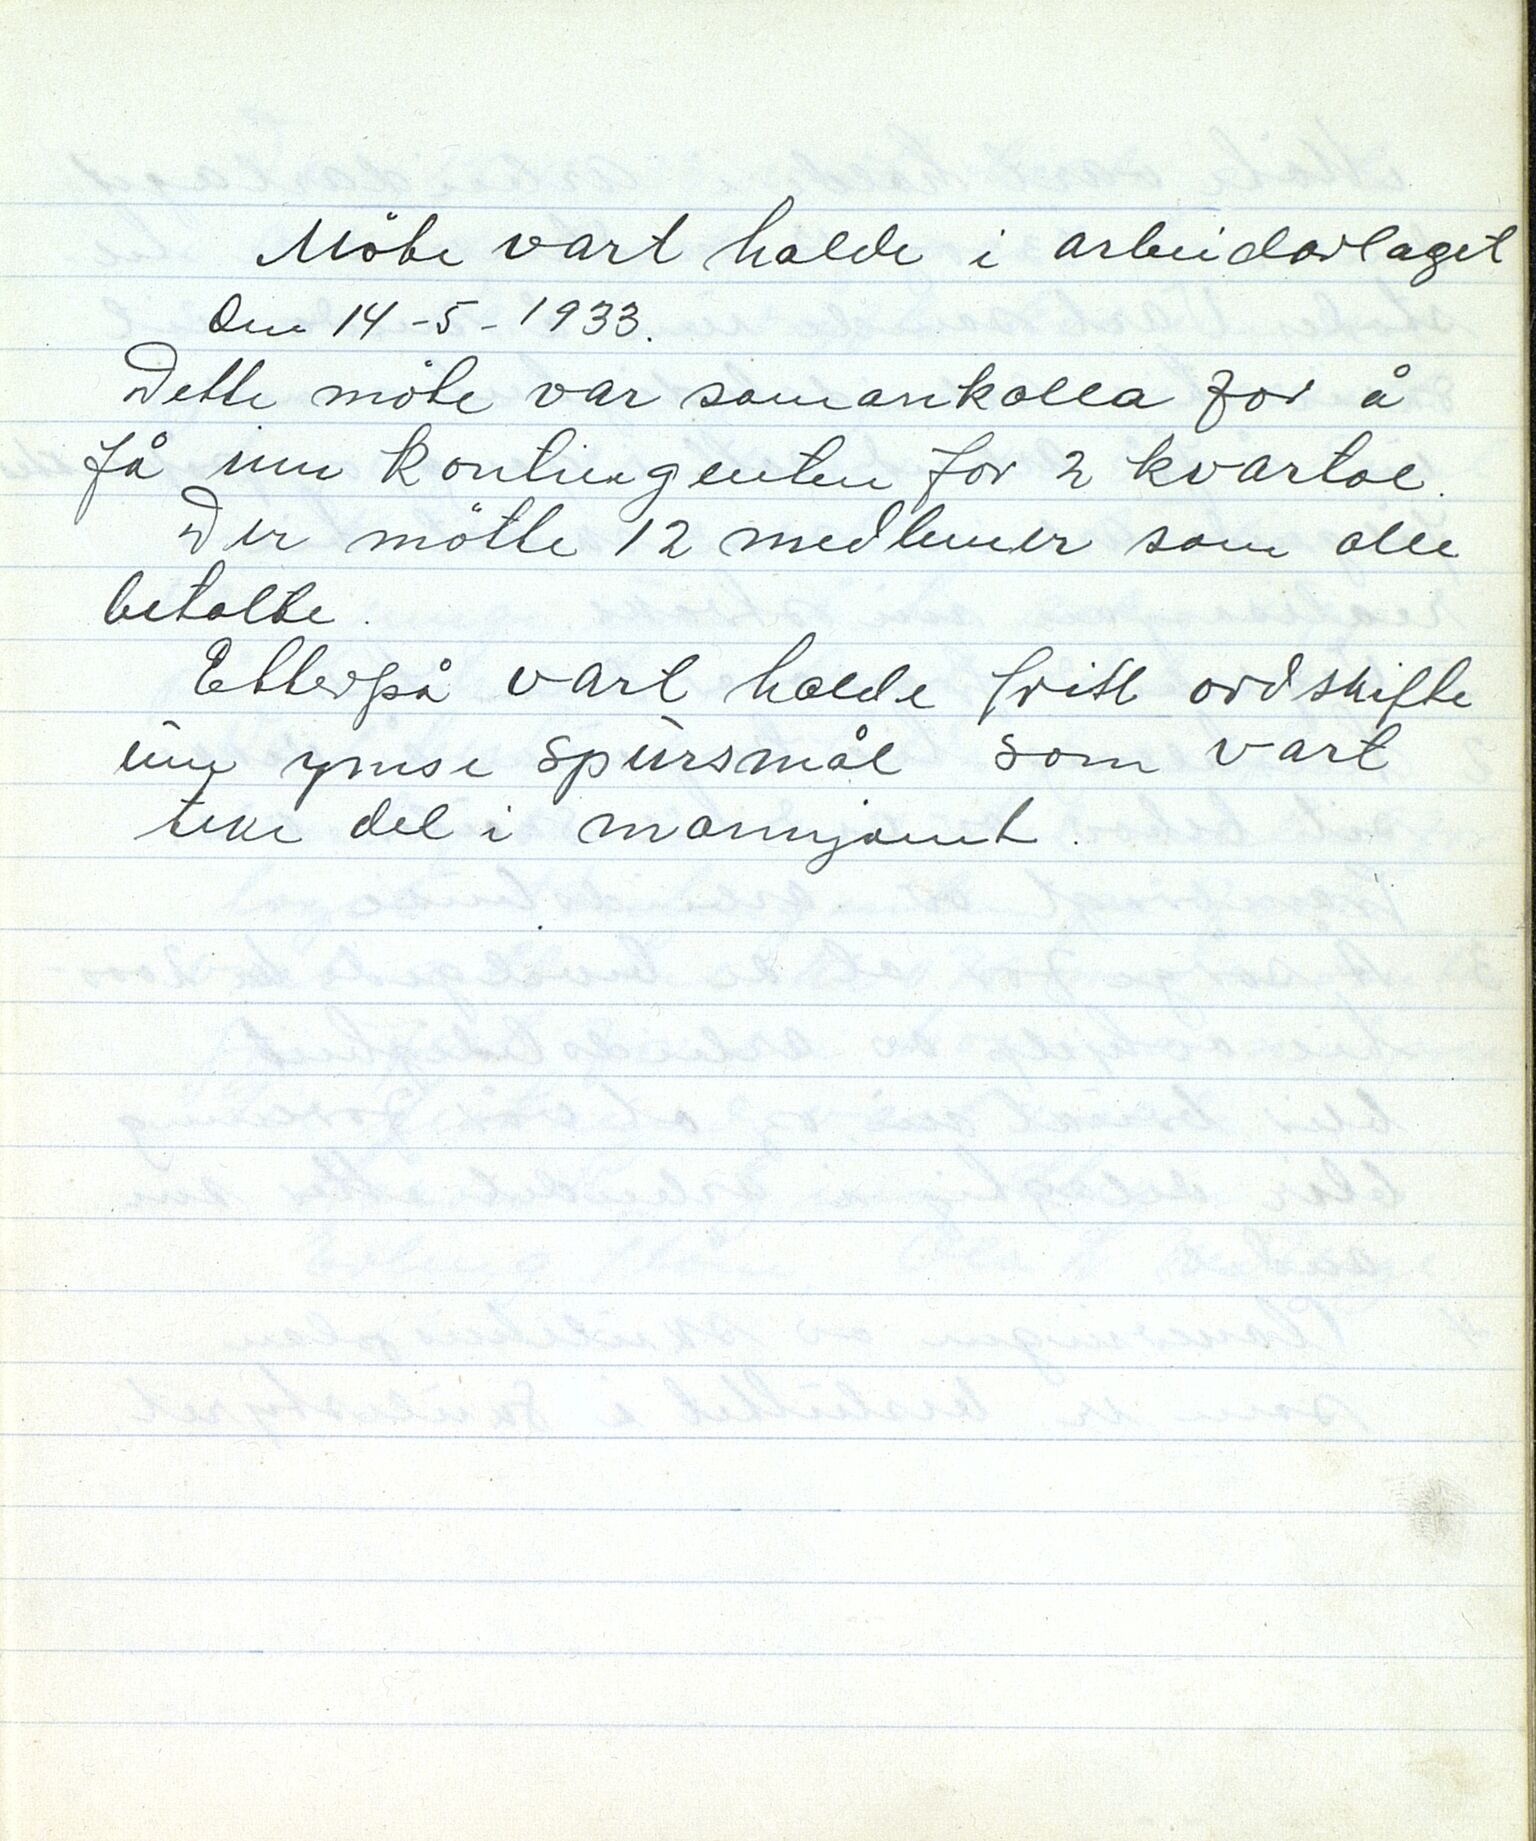 Möte vart halde i arbeidarlaget
den 14-5-1933.
Dette möte var samankalla for å
få inn kontingenten for 2 kvartal.
Der mötte 12 medlemer som alle
betalte.
Etterpå vart halde fritt ordskifte
um ymse spursmål som vart
teke del i mannjamt.